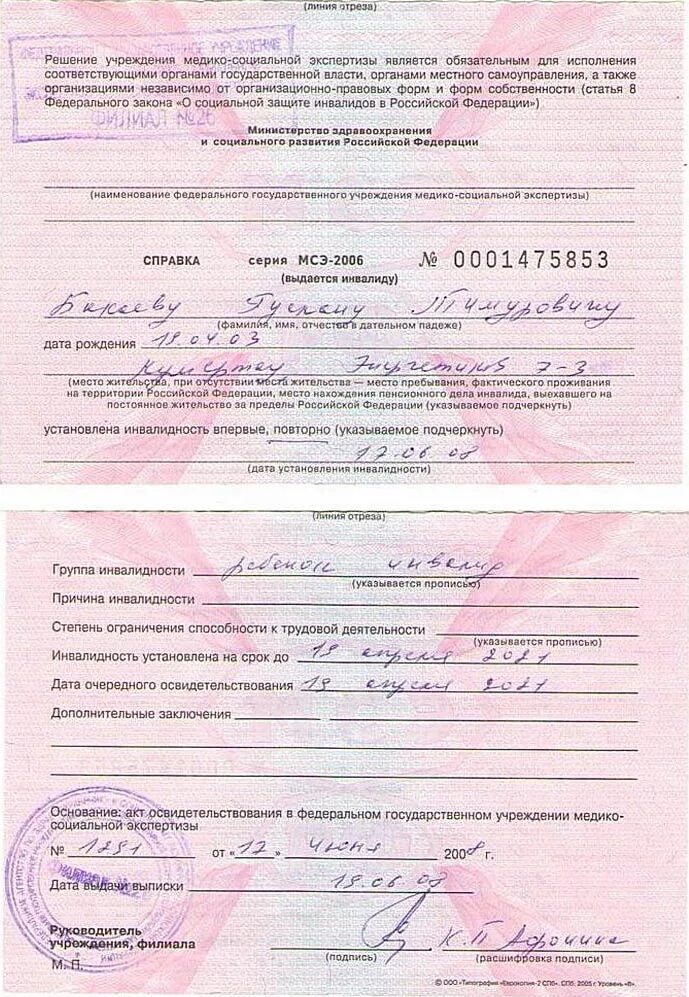 (линия отреза)
Решение учреждения медико-социальной экспертизы является обязательным для исполнения
соответствующими органами государственной власти, органами местного самоуправления, а также
организациями независимо от организационно-правовых форм и форм собственности (статья 8
Федерального закона «О социальной защите инвалидов в Российской Федерации»)
ФИЛИАЛ №26
Министерство здравоохранения
и социального развития Российской Федерации
(наименование федерального государственного учреждения медико-социальной экспертизы)
СПРАВКА серия МСЭ-2006 № 0001475853
(выдается инвалиду)
Бикаеву Тимуровичу
(фамилия, имя, отчество в дательном падеже)
дата рождения 19.04.03
Кумертау 7-3
(место жительства, при отсутствии места жительства — место пребывания, фактического проживания
на территории Российской Федерации, место нахождения пенсионного дела инвалида, выехавшего на
постоянное жительство за пределы Российской Федерации (указываемое подчеркнуть)
установлена инвалидность впервые, повторно (указываемое подчеркнуть)
17.06.08
(дата установления инвалидности)
(линия отреза)
Группа инвалидности ребенок инвалид
(указывается прописью)
Причина инвалидности
Степень ограничения способности к трудовой деятельности
(указывается прописью)
Инвалидность установлена на срок до 19 апреля 2021
Дата очередного освидетельствования 19 апреля 2021
Дополнительные заключения
Основание: акт освидетельствования в федеральном государственном учреждении медико-
социальной экспертизы
№ 1291 от «17» июня 2008 г.
Дата выдачи выписки 19.06.08
Руководитель
учреждения, филиала К.П Афонина
(подпись) (расшифровка подписи)
М. П.
© ООО «Типография «Еврокопия-2 СПб». СПб. 2005 г. Уровень «В».